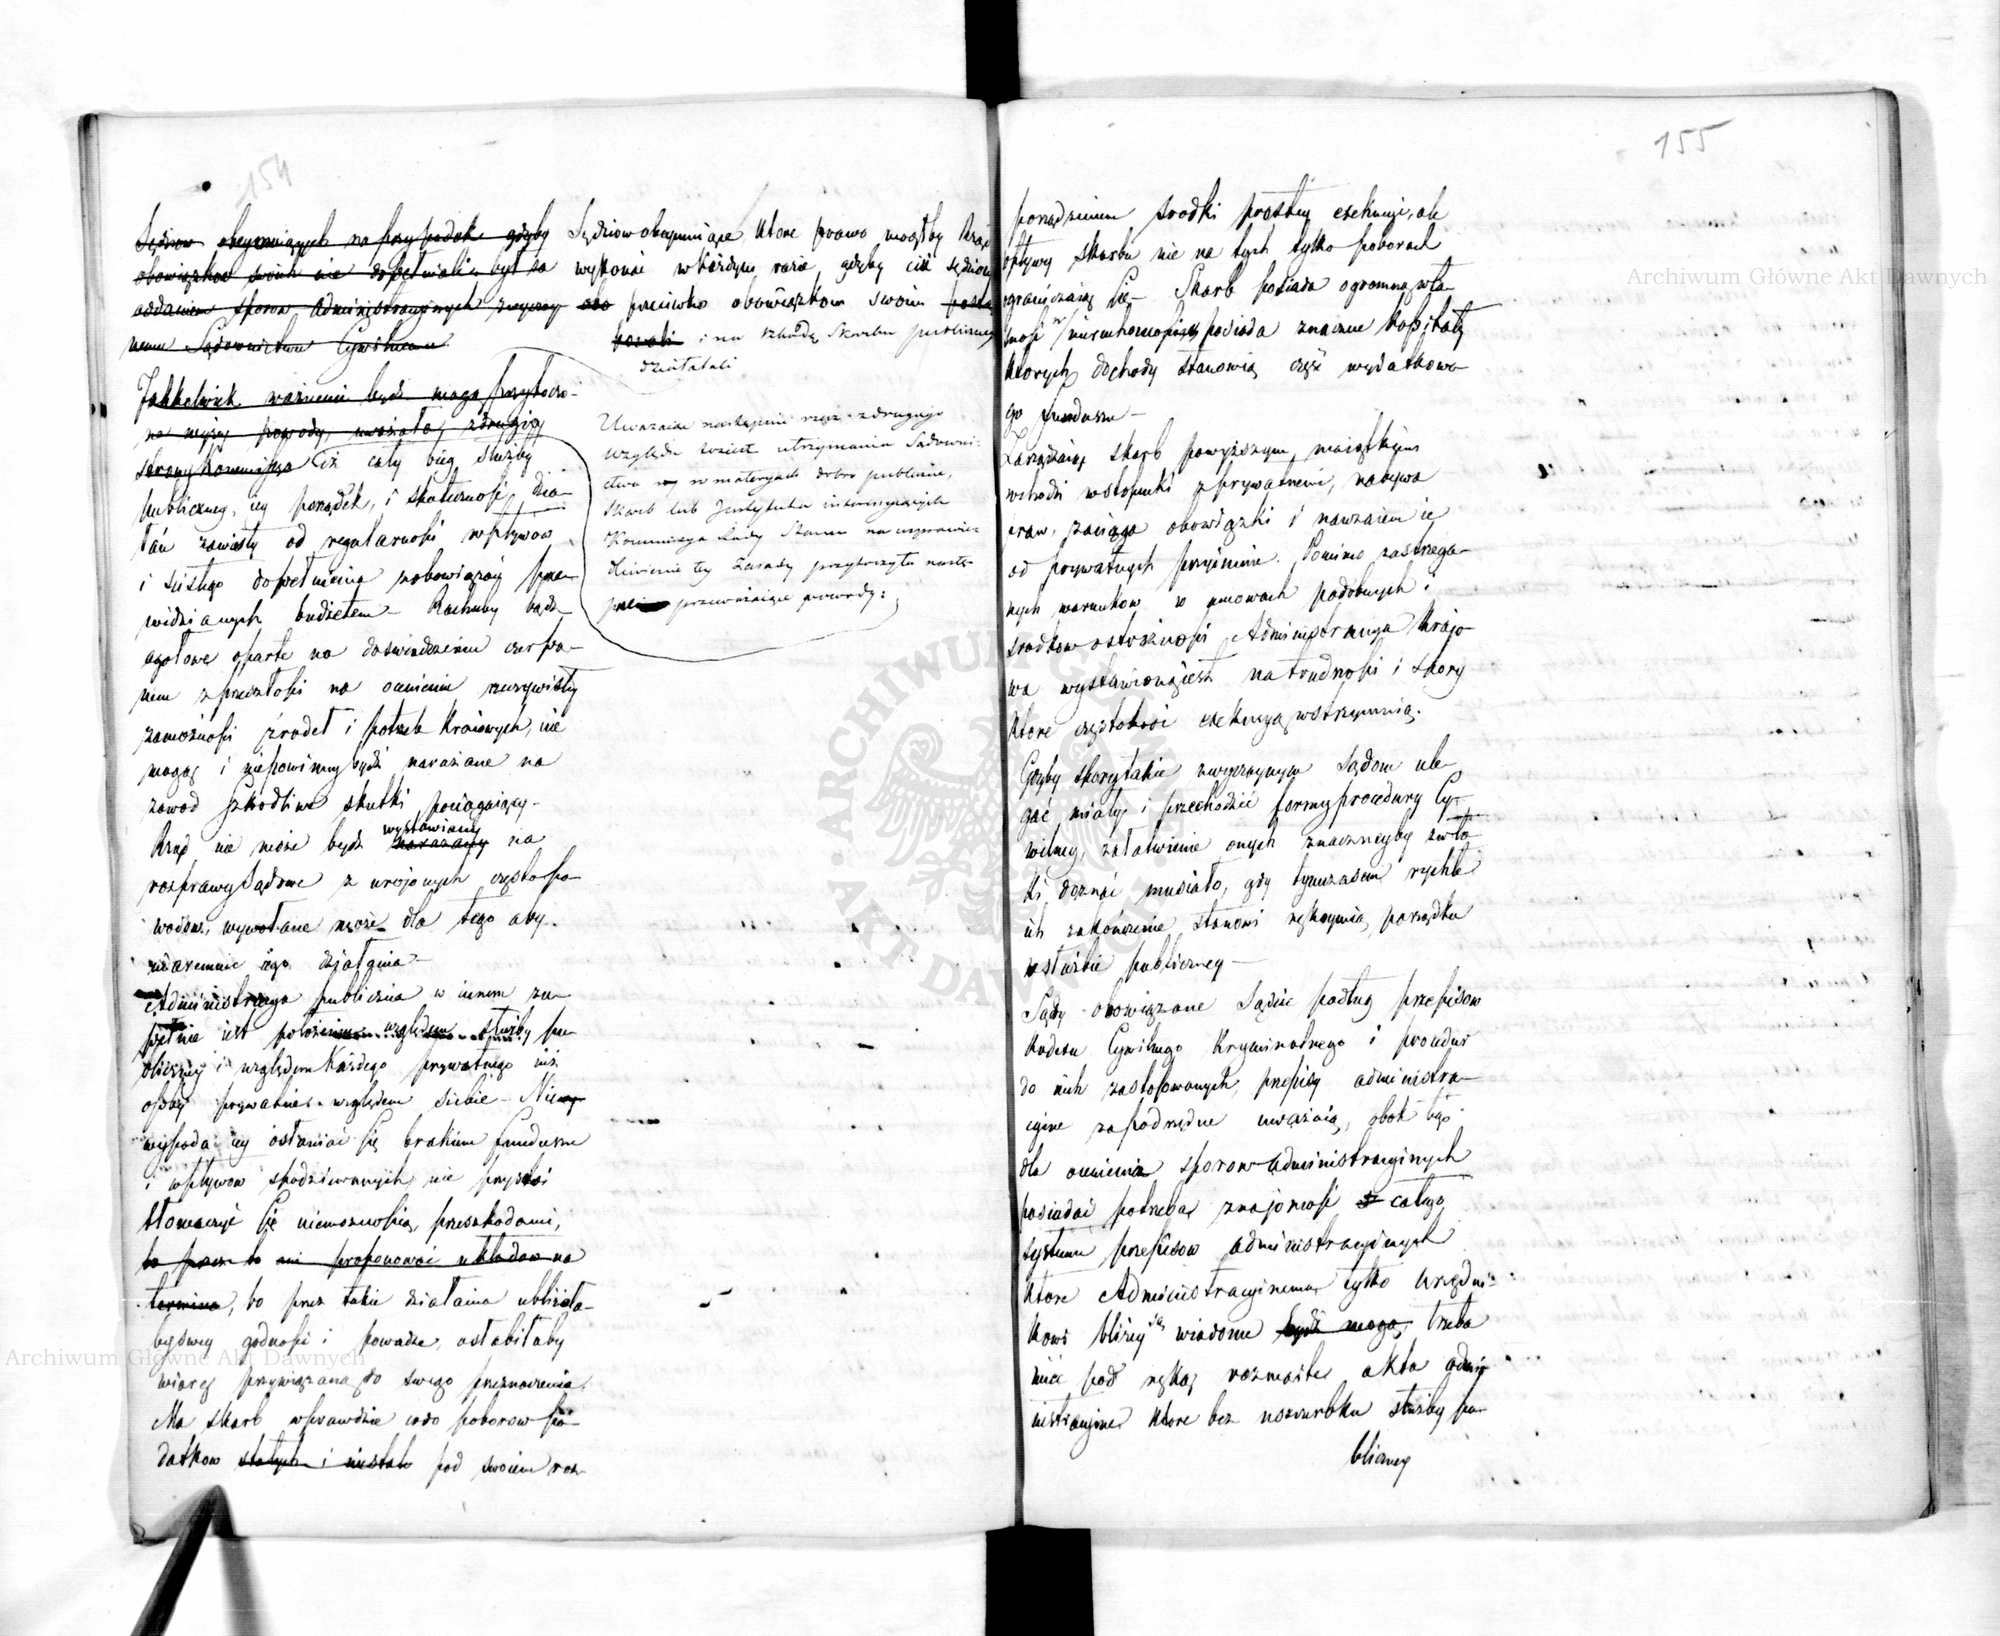 154
Sędziow obeymuiących na przypadek gdyby
obowiązkow swoich nie dopełniali, byt za
oddaniem sporow Administracyinych zwyczay-
nemu Sądownictwu Cywilnemu.
Jakkolwiek ważnemi bydź mogą przytoczo-
ne wyżey powody, uważała z drugiey
strony Kommissya iż cały bieg służby
publiczney, iey porządek, i skuteczność dzia-
łań zawisły od regularności wpływow
i ścisłego dopełnienia zobowiązań prze-
widzianych budżetem — Rachuby bądź
ogołowe oparte na doświadczeniu czerpa-
nem z przeszłości na ocenieniu rzeczywistey
zamożności źrodeł i potrzeb Kraiowych, nie
mogą i niepowinny bydź narażane na
zawod szkodliwe skutki pociągaiący.
wystawiany
Rząd nie może bydź narażany na
rozprawy Sądowe z urojonych częstopo-
wodow, wywołane może dla tego aby
nadaremnić iego działania —
Administracya publiczna w innem zu-
pełnie iest położeniu względem służby pu-
bliczney i względem Każdego prywatnego niż
osoby prywatne względem siebie — Nie
wypada iey osłaniać się brakiem funduszu
i wpływow spodziewanych, nie przystoi
tłomaczyć się niemożnością, przeszkodami,
to przez to ani proponować układow na
termina, bo przez takie działania ubliżała-
by swey godności i powadze, osłabiłaby
wiarę przywiązaną do swego przeznaczenia.
Ma skarb wprawdzie codo poborow po-
datkow stałych i niestałych pod swoiem roz-
Sędziow obeymuiące, Ktore prawo mogłby Rząd
wykonać w Każdym razie, gdyby ciż sędziowie
albo przeciwko obowiązkom swoim postę-
powali i na szkodę Skarbu publicznego
działali
Uważaiąc następnie rzecz z drugiego
względu to iest utrzymania Sądowni-
ctwa w materyach dobro publiczne,
Skarb lub Instytuta interessuiących
Kommissya Rady Stanu na usprawie-
dliwienie tey zasady przytoczyła nastę-
pne przeważaiące powody:
155
porządzeniem srodki prostey exekucyi, ale
wpływy skarbu nie na tych tylko poborach
ograniczaią się — Skarb posiada ogromną wła-
sność w nieruchomościach, posiada znaczne Kapitały
Ktorych dochody stanowią część wydatkowe-
go funduszu —
Zarządzaiąc skarb powyższym maiątkiem
wchodzi w stosunki z prywatnemi, nabywa
praw, zaciąga obowiązki i nawzaiem ie
od prywatnych przyimuie. Pomimo zastrzega-
nych warunkow w umowach podobnych i
srodkow ostrożności Administracya Krajo-
wa wystawioną iest na trudności i spory
Ktore częstokroć exekucyą wstrzymuią.
Gdyby spory takie zwyczaynym Sądom ule-
gać miały i przechodzić formy procedury Cy-
wilney, załatwienie onych znaczneyby zwło-
ki doznać musiało, gdy tymczasem rychłe
ich zakończenie stanowi rękoymią porządku
w służbie publiczney —
Sądy obowiązane Sądzić podług przepisow
Kodexu Cywilnego Kryminalnego i procedur
do nich zastosowanych, przepisy administra-
cyine za podrzędne uważaią, obok tego
dla ocenienia sporow administracyinych
posiadać potrzeba znajomość całego
systemu przepisow administracyinych
Ktore Administracyinemu tylko urzędni-
kowi bliżey są wiadome bydź mogą, trzeba
mieć pod ręką rozmaite akta admi-
nistracyine Ktore bez uszczerbku służby pu-
bliczney
Archiwum Główne Akt Dawnych
Archiwum Główne Akt Dawnych
ARCHIWUM GŁÓWNE AKT DAWNYCH